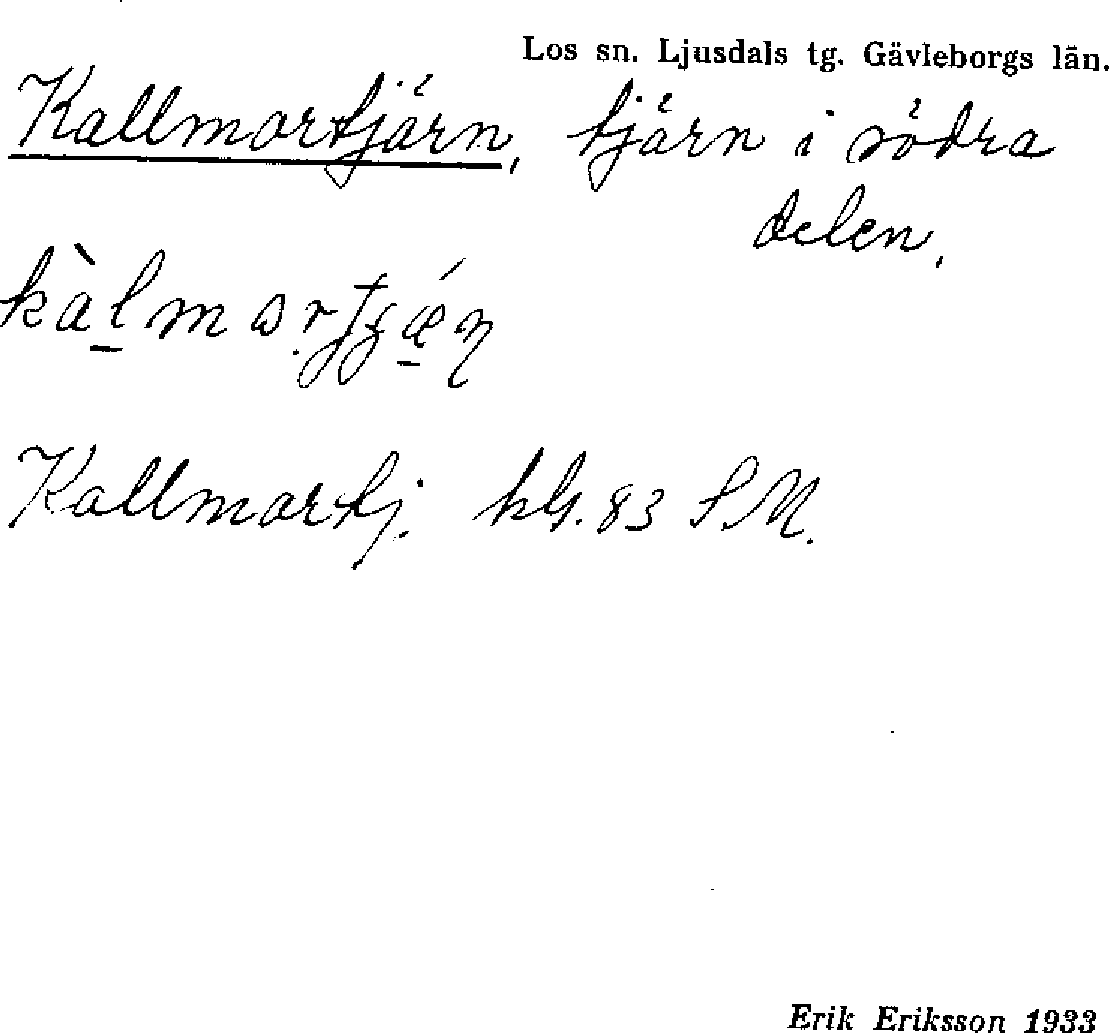 Los sn. Ljusdals tg. Gävleborgs län.
Kallmortjärn, tjärn i södra
delen.
Kallmortj. kbl. 83 S.M.
Erik Eriksson 1933